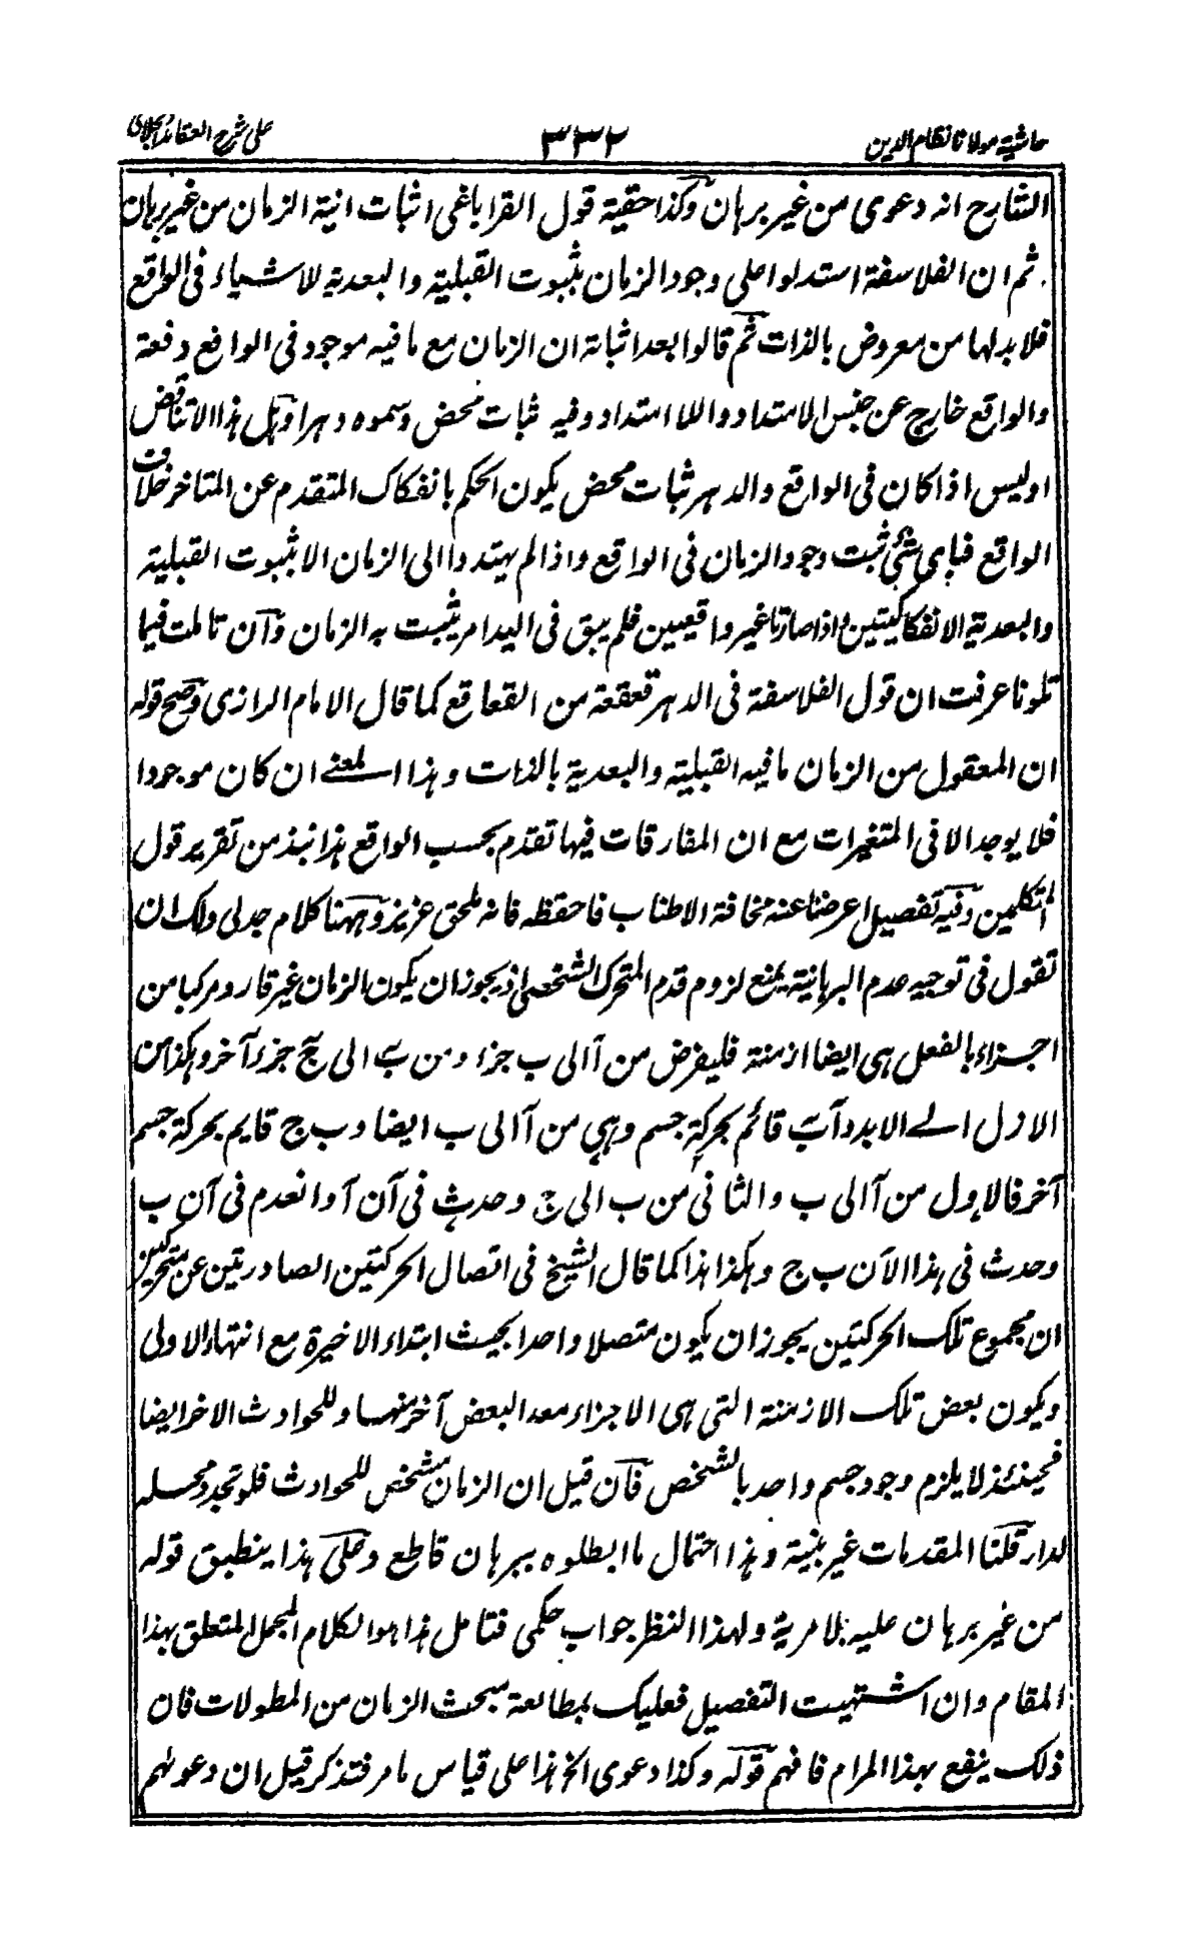 حاشية مولانا نظام الدين ٣٣٢ على شرح العقائد الجلالى
الشارح انه دعوى من غير برهان وكذا حقية قول القراباغى اثبات انية الزمان من غير برهان
ثم ان الفلاسفة استدلوا على وجود الزمان بثبوت القبلية والبعدية للاشياء فى الواقع
فلا بد لها من معروض بالذات ثم قالوا بعد اثباته ان الزمان مع ما فيه موجود فى الواقع دفعة
والواقع خارج عن جنس الامتداد واللا امتداد وفيه ثبات محض وسموه دهرا وهل هذا الا تناقض
اوليس اذا كان فى الواقع والدهر ثبات محض يكون الحكم بانفكاك المتقدم عن المتاخر خلاف
الواقع فباى شئ ثبت وجود الزمان فى الواقع واذا لم يهتدوا الى الزمان الا بثبوت القبلية
والبعدية الانفكاكيتين واذا صارتا غير واقعيين فلم يبق فى اليد امر يثبت به الزمان وان تاملت فيما
تلونا عرفت ان قول الفلاسفة فى الدهر قعقعة من القعاقع كما قال الامام الرازى وصح قوله
ان المعقول من الزمان ما فيه القبلية والبعدية بالذات وهذا المعنے ان كان موجودا
فلا يوجد الا فى المتغيرات مع ان المفارقات فيها تقدم بحسب الواقع هذا نبذ من تقرير قول
المتكلمين وفيه تفصيل اعرضنا عنه مخافة الاطناب فاحفظه فانه ملحق عزيز وههنا كلام جدلى ولك ان
تقول فى توجيه عدم البرهانية يمنع لزوم قدم المتحرك الشخصى اذ يجوز ان يكون الزمان غير قار ومركبا من
اجزاء بالفعل هى ايضا ازمنة فليفرض من آ الى ب جزء ومن ب الى ج جزء آخر وهكذا من
الازل الے الابد و آب قائم بحركة جسم وهى من آ الى ب ايضا و ب ج قايم بحركة جسم
آخر فالاول من آ الى ب والثانى من ب الى ج وحدث فى آن آ وانعدم فى آن ب
وحدث فى هذا الآن ب ج وهكذا هذا كما قال الشيخ فى اتصال الحركتين الصادرتين عن متحركين
ان مجموع تلك الحركتين يجوز ان يكون متصلا واحدا بحيث ابتداء الاخيرة مع انتهاء الاولى
ويكون بعض تلك الازمنة التى هى الاجزاء معد البعض آخر منها وللحوادث الاخر ايضا
فحينئذ لا يلزم وجود جسم واحد بالشخص فان قيل ان الزمان مشخص للحوادث فلو تجدد محله
لدار قلنا المقدمات غير بنية وهذا احتمال ما ابطلوه ببرهان قاطع وعلى هذا ينطبق قوله
من غير برهان عليه بلا مرية ولهذا النظر جواب حكمى فتامل هذا هو الكلام المجمل المتعلق بهذا
المقام وان اشتهيت التفصيل فعليك بمطالعة مبحث الزمان من المطولات فان
ذلك ينفع بهذا المرام فافهم قوله وكذا دعوى الخ هذا على قياس ما مر فتذكر قيل ان دعوٰهم